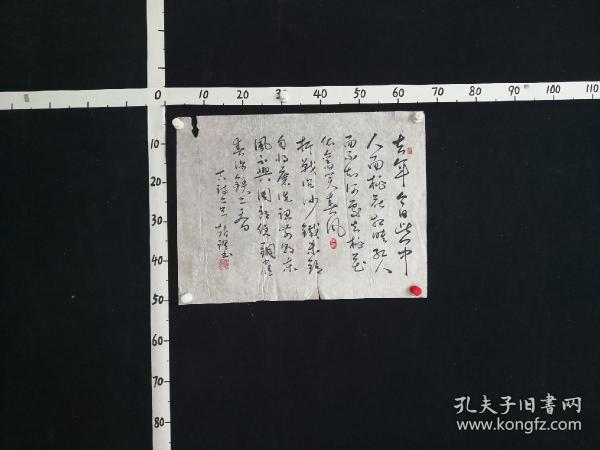 0 10 20 30 40 50 60 70 80 90 100 110
10
20
30
40
50
60
70
80
去年今日此门中
人面桃花相映红人
面不知何处去桃花
依旧笑春风
折戟沉沙铁未销
自将磨洗认前朝东
风不与周郎便铜雀
春深锁二乔
孔夫子旧书网
www.kongfz.com